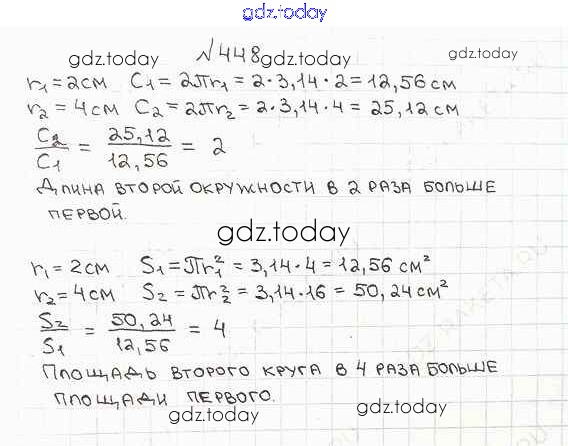 gdz.today
№448
gdz.today gdz.today gdz.today
r₁=2см C₁=2πr₁=2·3,14·2=12,56 см
r₂=4см C₂=2πr₂=2·3,14·4=25,12 см
C₂/C₁ = 25,12/12,56 = 2
Длина второй окружности в 2 раза больше
первой.
gdz.today
r₁=2см S₁=πr₁²=3,14·4=12,56 см²
r₂=4см S₂=πr₂²=3,14·16=50,24 см²
S₂/S₁ = 50,24/12,56 = 4
Площадь второго круга в 4 раза больше
площади первого.
gdz.today gdz.today